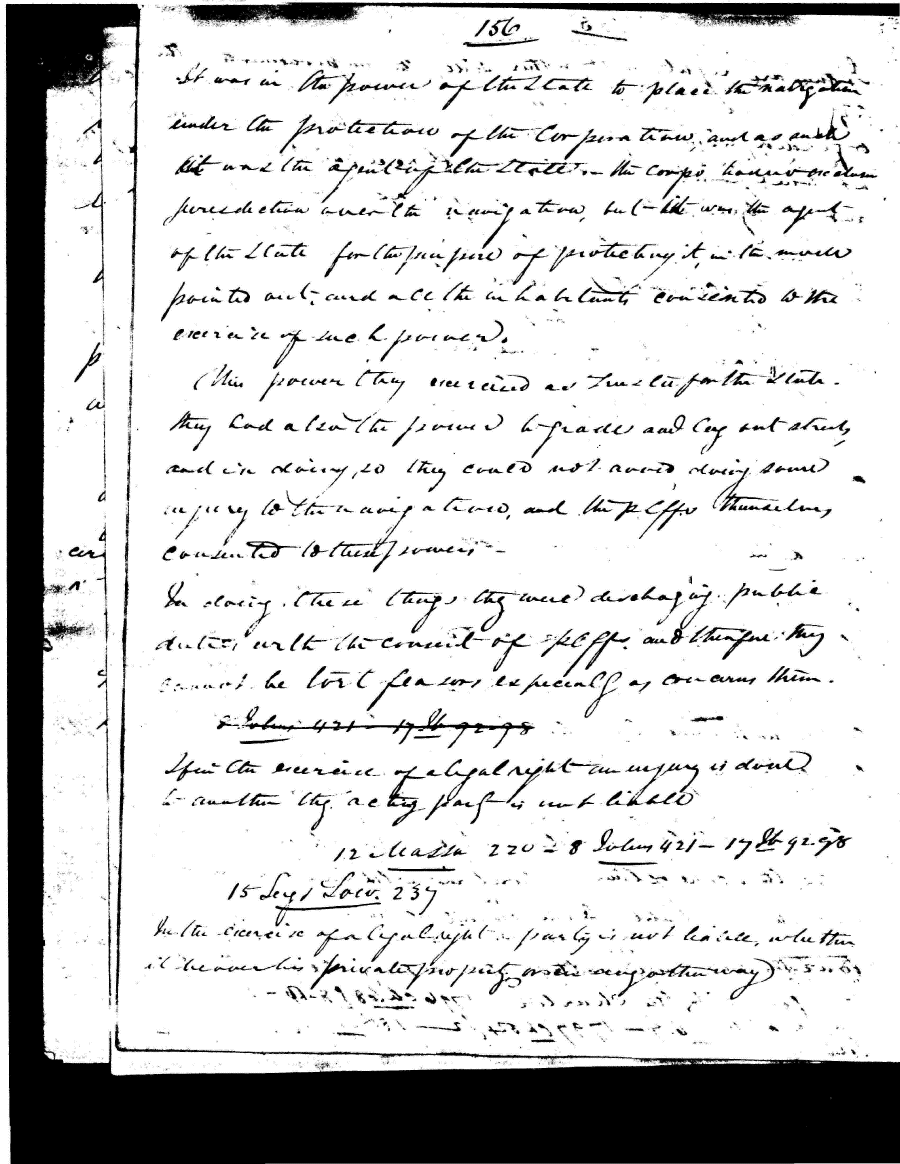 156 5
It was in the power of the State to place the navigation
under the protection of the Corporation, and as such
it was the agent of the State. - the corpo. had no exclusive
jurisdiction over the navigation, but it was the agent
of the State for the purpose of protecting it, in the mode
pointed out, and all the inhabitants consented to the
exercise of such power.
This power they exercised as Trustee for the State.
they had also the power to grade and lay out streets,
and in doing so they could not avoid doing some
injury to the navigation, and the plffs themselves
consented to these powers -
In doing these things they were discharging public
duties with the consent of plffs. and therefore they
cannot be tort feasors especially as concerns them.
8 Johns 421 - 17 Ib 92-98
If in the exercise of a legal right an injury is done
to another the acting party is not liable
12 Massa 220 - 8 Johns 421 - 17 Ib 92.98
15 Sergt Low. 237
In the exercise of a legal right a party is not liable, whether
it be over his private property or in any other way